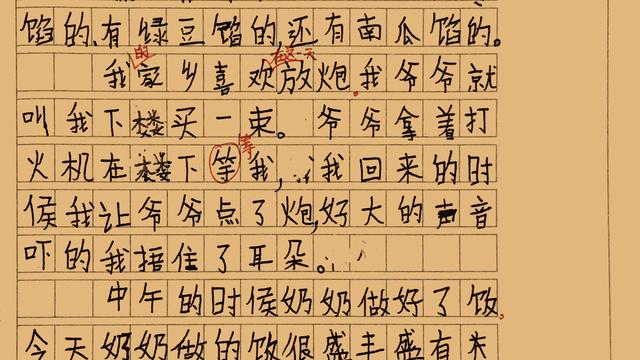 馅的、有绿豆馅的,还有南瓜馅的。
的 在这一天
我家乡喜欢放炮。我爷爷就
叫我下楼买一束。爷爷拿着打
等
火机在楼下笙我,我回来的时
侯我让爷爷点了炮,好大的声音
吓的我捂住了耳朵。
中午的时侯奶奶做好了饭,
今天奶奶做的饭很盛丰盛有米